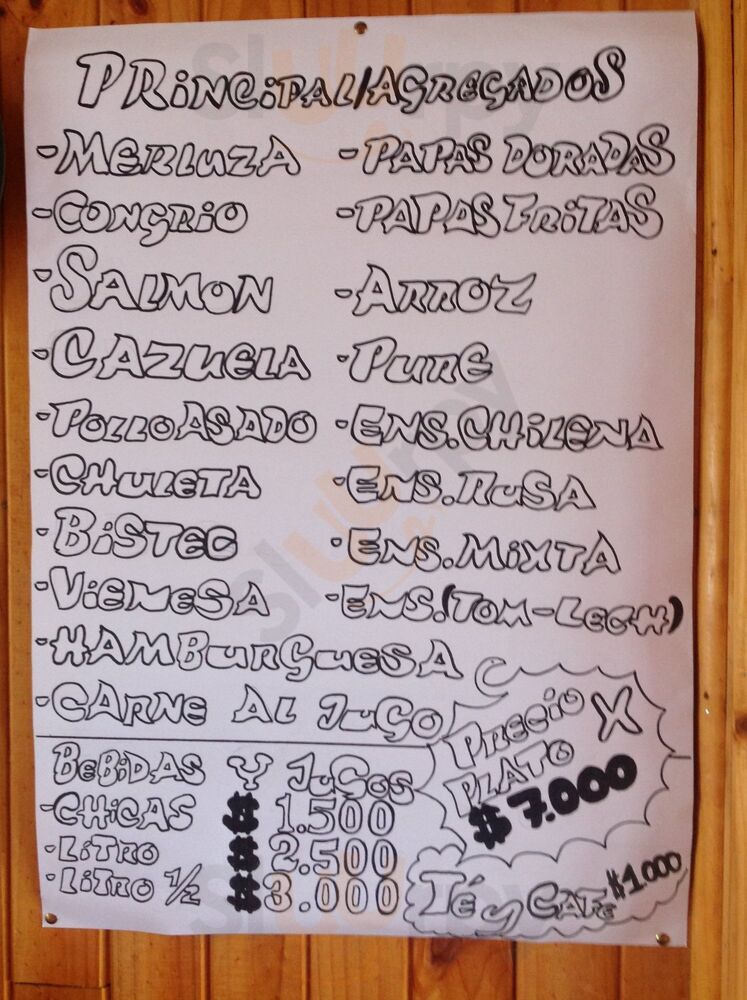 PRINCIPAL/AGREGADOS
-MERLUZA -PAPAS DORADAS
-CONGRIO -PAPAS FRITAS
-SALMON -ARROZ
-CAZUELA -PURE
-POLLO ASADO -ENS.CHILENA
-CHULETA -ENS.RUSA
-BISTEC -ENS.MIXTA
-VIENESA -ENS.(TOM-LECH)
-HAMBURGUESA
-CARNE AL JUGO
PRECIO X
PLATO
$7.000
BEBIDAS Y JUGOS
-CHICAS $ 1.500
-LITRO $ 2.500
-LITRO 1/2 $ 3.000
Té y CAFE $1.000
Sluurpy
Sluurpy
Sluurpy